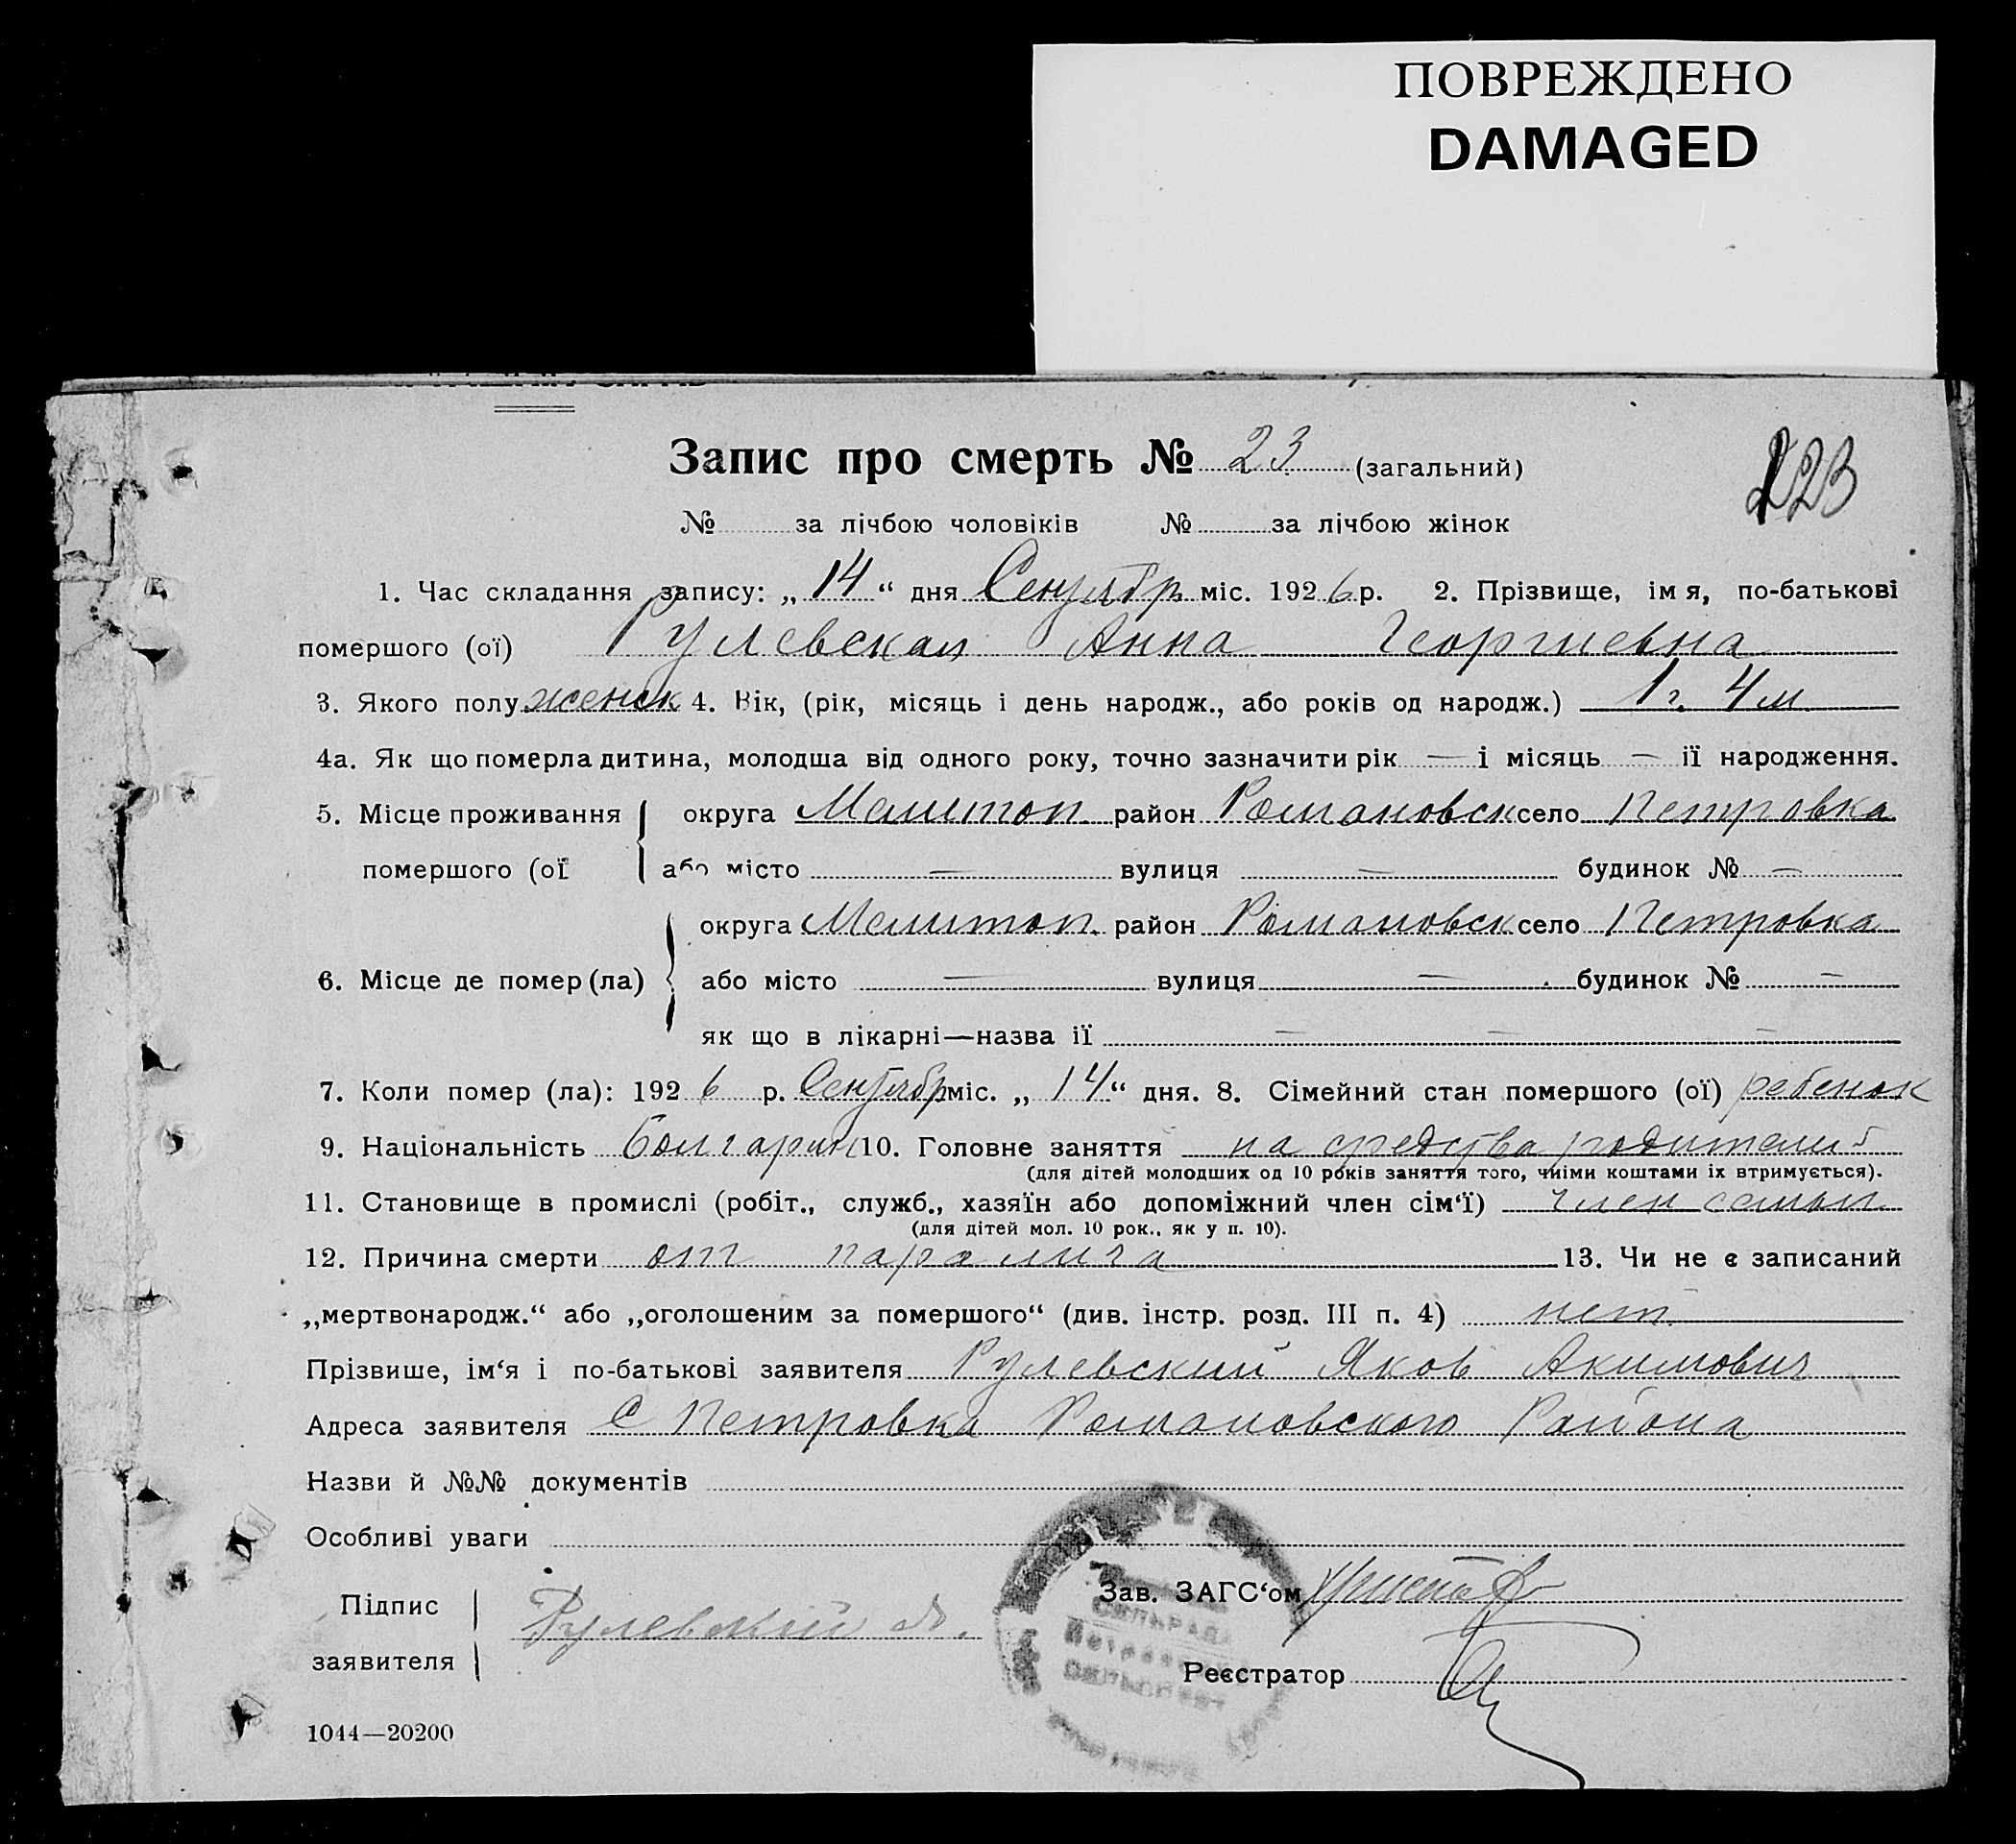 ПОВРЕЖДЕНО
DAMAGED
Запис про смерть № 23 (загальний)
223
№ за лічбою чоловіків № за лічбою жінок
1. Час складання запису: „14“ дня Сентябр міс. 1926 р. 2. Прізвище, імя, по-батькові
помершого (ої) Рулевская Анна Георгиевна
3. Якого полу женск 4. Вік, (рік, місяць і день народж., або років од народж.) 1 г. 4 м
4а. Як що померла дитина, молодша від одного року, точно зазначити рік — і місяць — ії народження.
5. Місце проживання округа Мелитоп. район Романовск село Петровка
помершого (ої або місто — вулиця — будинок № —
округа Мелитоп. район Романовск село Петровка
6. Місце де помер (ла) або місто — вулиця — будинок № —
як що в лікарні—назва ії — — —
7. Коли помер (ла): 1926 р. Сентябр міс. „14“ дня. 8. Сімейний стан помершого (ої) ребенок
9. Національність Болгарин 10. Головне заняття на средства родителей
(для дітей молодших од 10 років заняття того, чиїми коштами іх втримується).
11. Становище в промислі (робіт., служб., хазяїн або допоміжний член сім‘ї) член семьи
(для дітей мол. 10 рок., як у п. 10).
12. Причина смерти от паралича 13. Чи не є записаний
„мертвонародж.“ або „оголошеним за помершого“ (див. інстр. розд. III п. 4) нет
Прізвише, ім‘я і по-батькові заявителя Рулевский Яков Акимович
Адреса заявителя С Петровка Романовского Района
Назви й №№ документів
Особливі уваги
Підпис Рулевский Я. Зав. ЗАГС‘ом
СІЛЬРАДА
заявителя Реєстратор
1044—20200